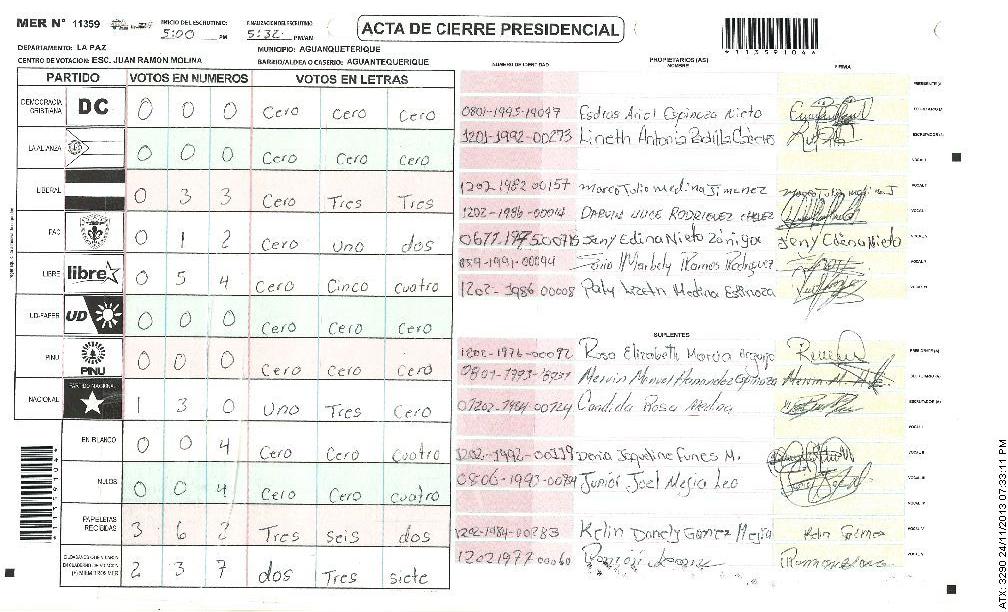 MER N° 11359 INICIO DEL ESCRUTINIO: 5:00 PM FINALIZACION DEL ESCRUTINIO 5:32 PM/AM ACTA DE CIERRE PRESIDENCIAL
*11359104*
DEPARTAMENTO: LA PAZ MUNICIPIO: AGUANQUETERIQUE
CENTRO DE VOTACION: ESC. JUAN RAMON MOLINA BARRIO/ALDEA O CASERIO: AGUANTEQUERIQUE
PARTIDO VOTOS EN NUMEROS VOTOS EN LETRAS
DEMOCRACIA CRISTIANA DC 0 0 0 Cero Cero Cero
LA ALIANZA 0 0 0 Cero Cero Cero
LIBERAL 0 3 3 Cero Tres Tres
PAC 0 1 2 Cero uno dos
LIBRE libre 0 5 4 Cero Cinco cuatro
UD-FAPER UD 0 0 0 Cero Cero Cero
PINU PINU 0 0 0 Cero Cero Cero
NACIONAL PARTIDO NACIONAL 1 3 0 Uno Tres Cero
EN BLANCO 0 0 4 Cero Cero cuatro
NULOS 0 0 4 Cero Cero cuatro
PAPELETAS RECIBIDAS 3 6 2 Tres seis dos
2 3 7 dos Tres siete
NUMERO DE IDENTIDAD PROPIETARIOS (AS) NOMBRE FIRMA
PRESIDENTE (A)
0801-1995-19097 Esdras Ariel Espinoza Nieto SECRETARIO (A)
1201-1992-00273 Lineth Antonia Padilla ESCRUTADOR (A)
VOCAL I
1202 1982 00157 Marco Tulio Medina Jimenez
1202-1986-00014 DARWIN RODRIGUEZ
Jeny Edina Nieto Zúniga Jeny Edena Nieto
Marbely Ramos Rodriguez
1202-1986 00008 Paty Lizeth Medina Espinoza
SUPLENTES
1202-1976-00092 Rosa Elizabeth PRESIDENTE (A)
Mervin Manuel Hernandez Espinoza SECRETARIO (A)
Candida Rosa Medina ESCRUTADOR (A)
VOCAL I
1202-1992-00119 Denia Jaqueline Funes M.
Junior Joel Mejia Leo
1202-1984-00283 Kelin Danely Gomez Mejia Kelin Gomez
1202 1977 00060
ATX: 3290 24/11/2013 07:33:11 PM